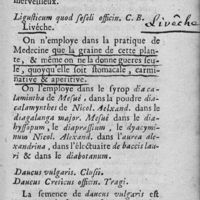 merveilleux.
Ligusticum quod seseli officin. C. B.
Livêche.
Livêche
On n'employe dans la pratique de
Medecine que la graine de cette plan-
te, & même on ne la donne gueres seu-
le, quoyqu'elle soit stomacale, carmi-
native & aperitive.
On l'employe dans le syrop dia ca-
lamintha de Mesué, dans la poudre dia-
calamynthes de Nicol. Alexand. dans le
diagalanga major. Mesué dans le dia-
hyssopum, le diaprassium, le dyacymi-
num Nicol. Alexand. dans l'aurea ale-
xandrina, dans l'electuaire de baccis lau-
ri & dans le diabotanum.
Daucus vulgaris. Clusii.
Daucus Creticus officin. Tragi.
La semence de daucus vulgaris est